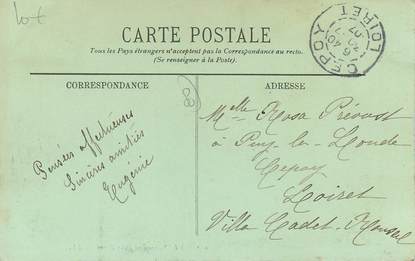 lot
CARTE POSTALE
Tous les Pays étrangers n'acceptent pas la Correspondance au recto.
(Se renseigner à la Poste).
CEPOY LOIRET
6 40
CORRESPONDANCE
ADRESSE
88
Pensées affectueuses
Sincères amitiés
Eugénie
Melle Rosa Prévost
à Puy la
Cepoy
Loiret
Villa Cadet